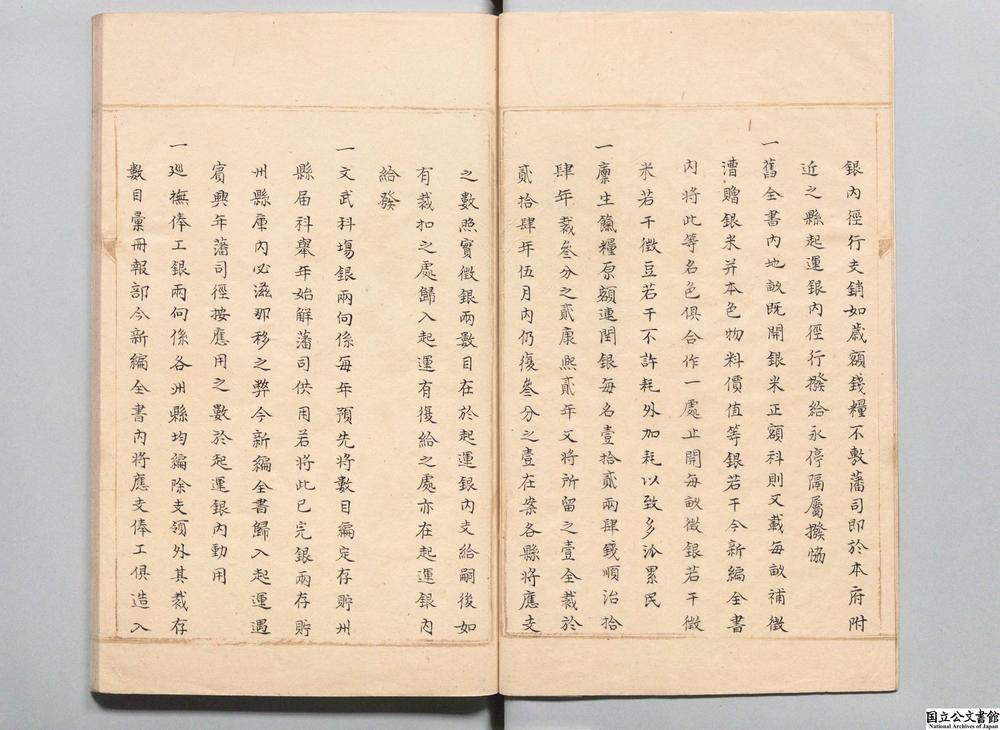 銀內徑行支銷如歲額錢糧不敷藩司即於本府附
近之縣起運銀內徑行撥給永停隔屬撥協
一舊全書內地畝既開銀米正額科則又載每畝補徵
漕贈銀米并本色物料價值等銀若干今新編全書
內將此等名色俱合作一處止開每畝徵銀若干徵
米若干徵豆若干不許耗外加耗以致多派累民
一廩生餼糧原額連閏銀每名壹拾貳兩肆錢順治拾
肆年裁叄分之貳康熙貳年又將所留之壹全裁於
貳拾肆年伍月內仍復叄分之壹在案各縣將應支
之數照實徵銀兩數目在於起運銀內支給嗣後如
有裁扣之處歸入起運有復給之處亦在起運銀內
給發
一文武科場銀兩向係每年預先將數目編定存貯州
縣届科舉年始解藩司供用若將此已完銀兩存貯
州縣庫內必滋那移之弊今新編全書歸入起運遇
賓興年藩司徑按應用之數於起運銀內動用
一廵撫俸工銀兩向係各州縣均編除支領外其裁存
數目彙冊報部今新編全書內將應支俸工俱造入
国立公文書館
National Archives of Japan